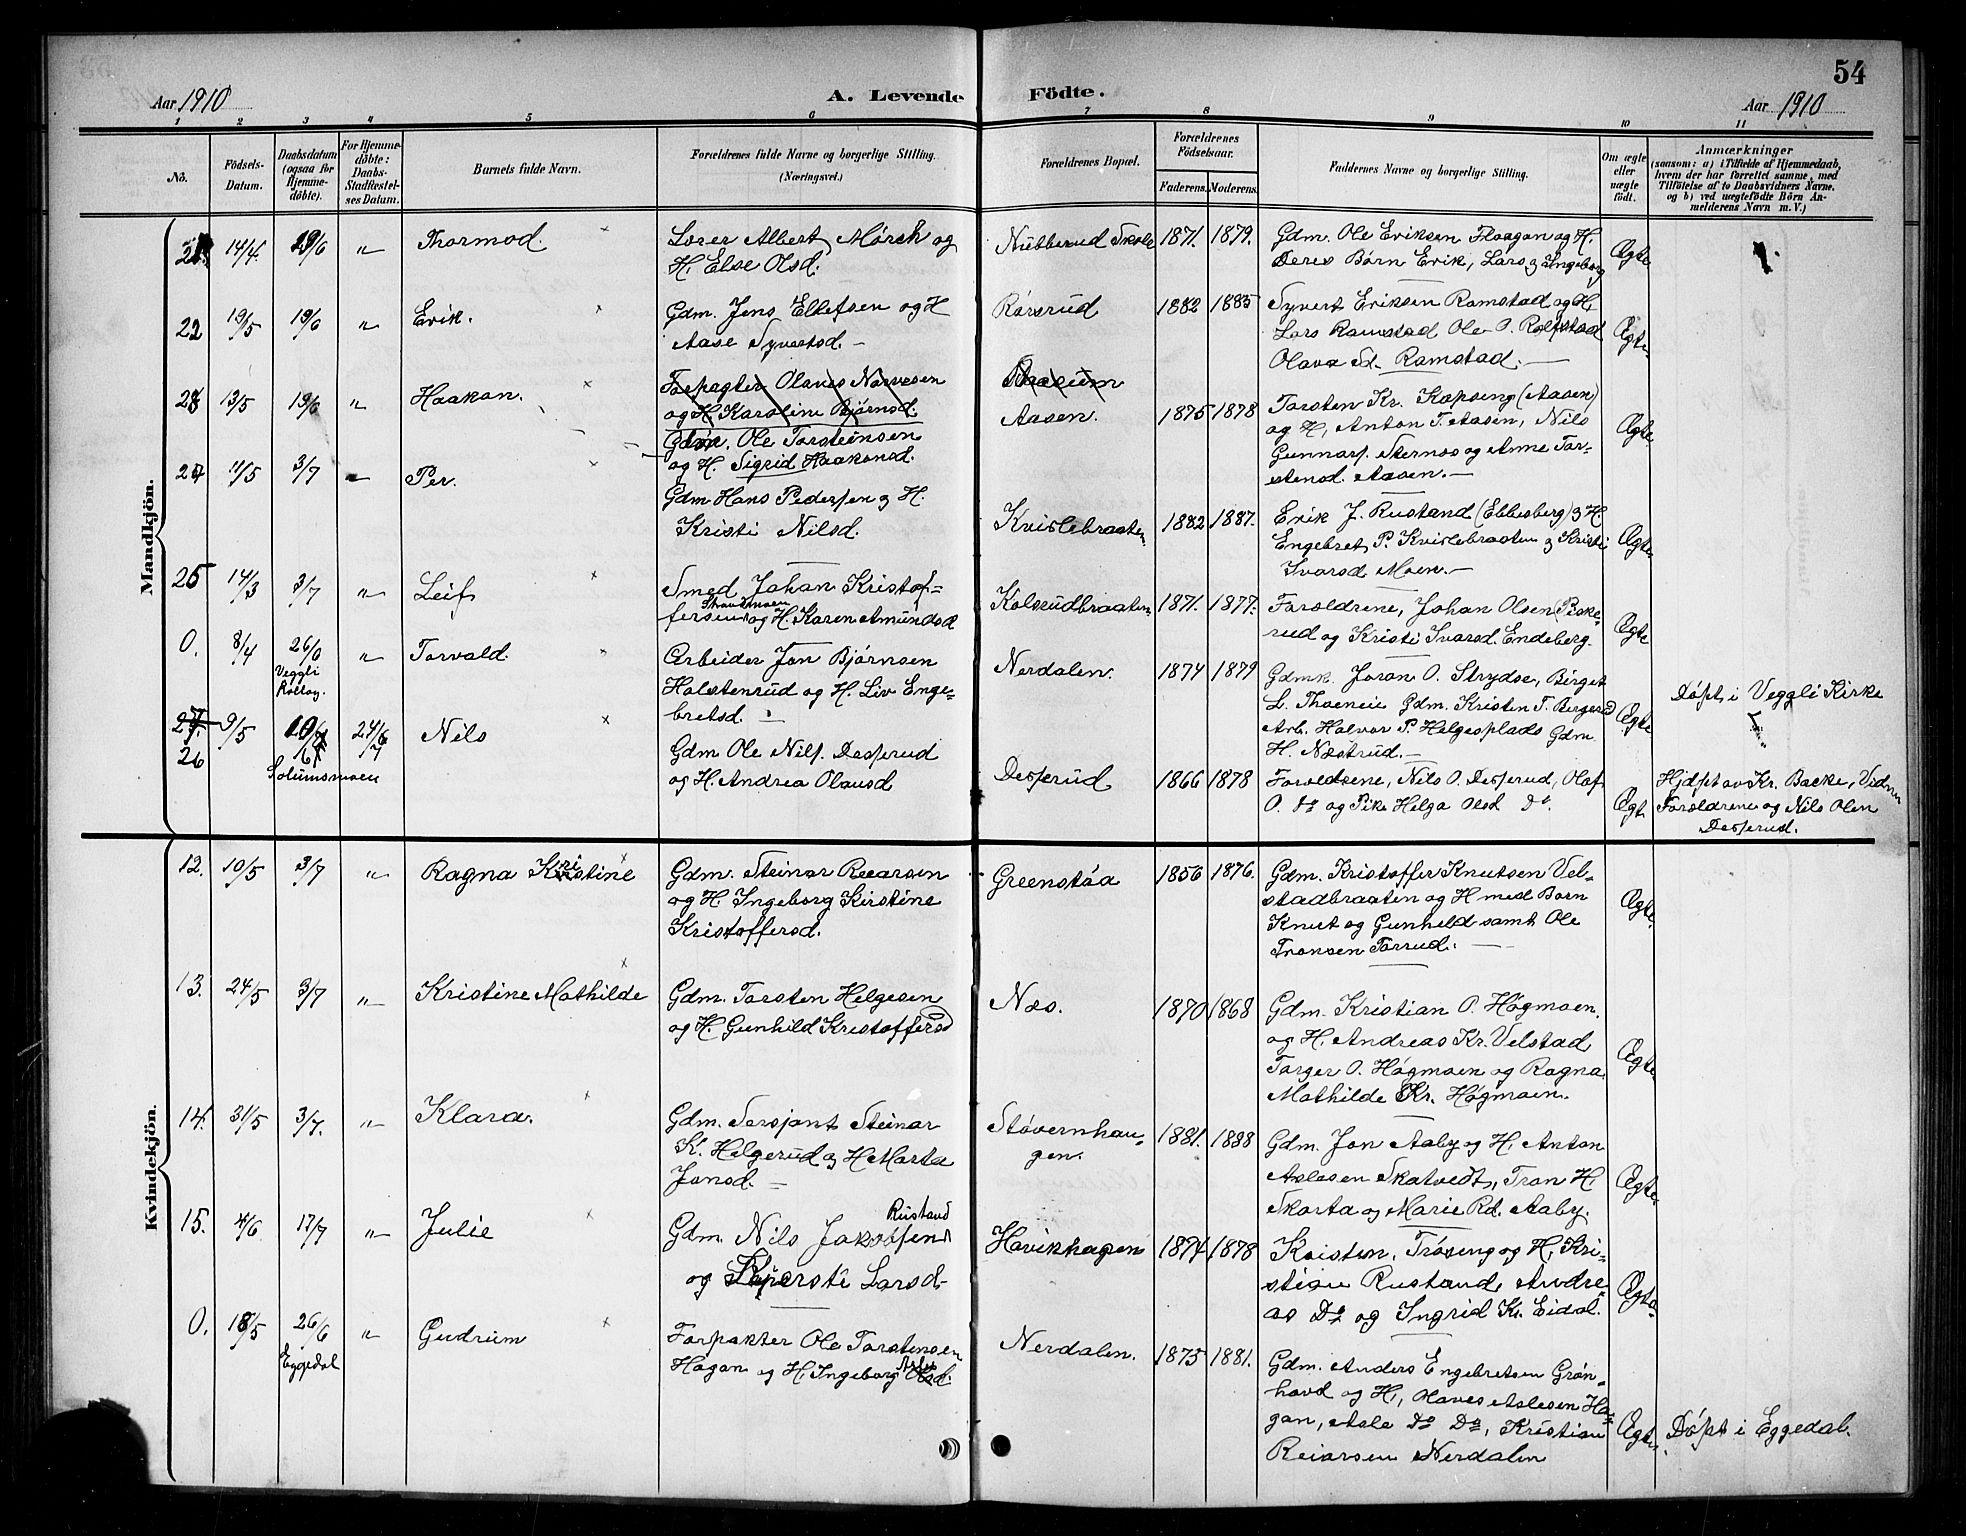 54
Aar 1910
A. Levende Födte.
Aar 1910
1 2 3 4 5 6 7 8 9 10 11
No.
Födsels-Datum.
Daabsdatum (ogsaa for Hjemmedöbte).
For Hjemmedöbte: Daabs-Stadfestelses Datum.
Barnets fulde Navn.
Forældrenes fulde Navne og borgerlige Stilling. (Næringsvei.)
Forældrenes Bopæl.
Forældrenes Födselsaar.
Faderens. Moderens.
Faddernes Navne og borgerlige Stilling.
Om ægte eller uægte födt.
Anmærkninger
(saasom: a) i Tilfælde af Hjemmedaab, hvem der har forrettet samme, med Tilföielse af to Daabsvidners Navne. og b) ved uægtefödte Börn Anmelderens Navn m. V.)
Mandkjön.
21. 14/4. 19/6 " Thormod.
Lærer Albert Mørch og
H. Else Olsd.
Nubberud Skole 1871. 1879.
Gdm. Ole Eriksen Flaagan og H.
Deres Børn Erik, Lars og Ingeborg
Ægte
22 19/5 19/6 " Erik.
Gdm. Jens Ellefsen og H
Aase Syvertsd. —
Rörsrud 1882 1885
Syvert Eriksen Ramstad og H,
Lars Ramstad Ole O. Rolfstad
Olava Sd. Ramstad. —
Ægte
23 13/5 19/6 " Haakon.
Forpagter Olaves Narvesen
og H Karoline Bjørnsd.
Gdm. Ole Torsteinsen
og H. Sigrid Haakonsd.
Aasen. 1875 1878
Torsten Kr. Kopseng (Aasen)
og H, Anton T. Aasen, Nils
Gunnars. Sternes og Anne Tor-
stensd. Aasen. —
Ægte
24 11/5 3/7 Per.
Gdm Hans Pedersen og H.
Kristi Nilsd.
Kvislebraaten 1882 1887.
Erik J. Rustand (Ebbesberg) og H.
Engebret P. Kvislebraaten og Kristi
Ivarsd Moen. —
Ægte
25 14/3 3/7 " Leif
Smed Johan Kristof-
Strandmoen
fersen og H. Karen Amundsd
Kolsrudbraaten 1871. 1877.
Forældrene, Johan Olsen (Bake-
rud og Kristi Ivarsd. Endeberg.
Ægte
0. 8/4 26/6 " Torvald
Veggli
Arbeider Jon Bjørnsen
Holstenrud og H. Liv Enge-
bretsd. —
Nerdalen. 1874 1879
Gdmk. Joran O. Strydse, Birget
L. Thoeneie Gdm. Kristen T. Bergerud
Arb. Halvor P. Helgesplads Gdm
H. Næstrud. —
Ægte
Døpt i Veggli Kirke
27. 9/5 24/7 Nils
26
Solumsmoen
Gdm Ole Nils. Desserud
og H. Andrea Olausd
Desserud 1866 1878
Forældrene, Nils O. Desserud, Olaf
O. Do og Pike Helga Olsd Do.
Ægt.
Hjdpt av Kr. Backe, Vidner
Forældrene og Nils Olsen
Desserud.
Kvindekjön.
12. 10/5 3/7 " Ragna Kristine
Gdm. Steinar Reiarsen
og H. Ingeborg Kirstine
Kristoffersd.
Greenstøa 1856 1876.
Gdm. Kristoffer Knutsen Vel-
stadbraaten og H med Børn
Knut og Gunhild samt Ole
Tronsen Torrud. —
Ægte
13. 24/5 3/7 " Kristine Mathilde
Gdm. Torsten Helgesen
og H Gunhild Kristoffersd
Næs. 1870 1868
Gdm. Kristian O. Høgmoen.
og H. Andreas Kr. Velstad
Torger O. Høgmoen og Ragna
Mathilde Kr. Høgmoen.
Ægte
14. 31/5 3/7. " Klara.
Gdm. Sersjant Steinar
K. Helgerud og H Marta
Jonsd. —
Støvernhau-
gen. 1881. 1888
Gdm. Jon Aaby og H, Anton
Aslesen Skatvedt, Tron H.
Skarta og Marie Rd. Aaby.
Ægte
15. 4/6 17/7 " Julie
Rustand
Gdm. Nils Jakobsen
og Lars d-
Havikhagen 1874 1878
Kristen. Trøseng og H, Kri-
stian Rustand, Andre-
as Do og Ingrid Kr. Eidal.
Ægte
0. 18/5 26/6 " Gudrun
Eggedal
Forpakter Ole Torstensen
Hagan og H. Ingeborg
Nerdalen. 1875 1881.
Gdm. Anders Engebretsen Grøn-
hovd og H, Olaves Aslesen Ha-
gan, Asle Do Do, Kristian
Reiersen Nerdalen
Ægte
Døpt i Eggedal.